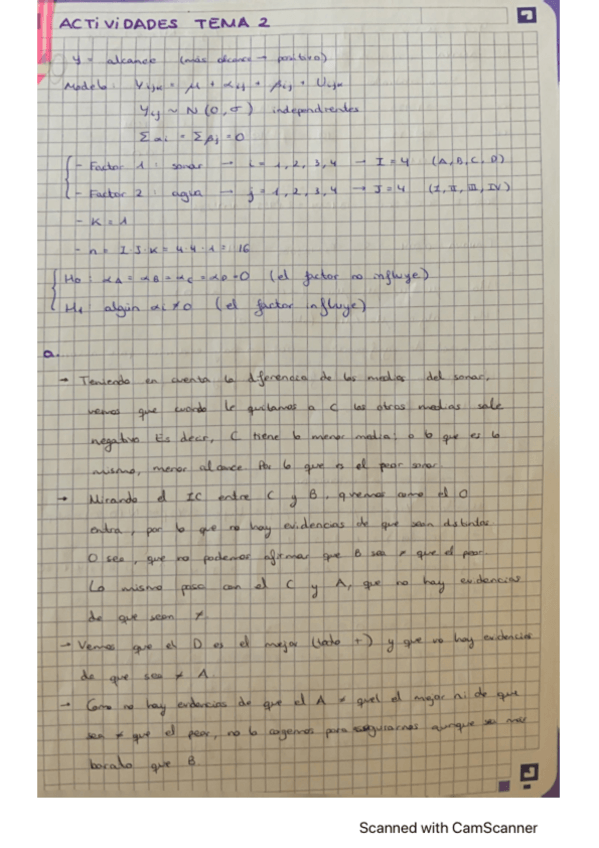 ACTIVIDADES TEMA 2
Y = alcance (más alcance → positivo)
Modelo: Yijk = μ + αi + βj + Uijk
Yij ~ N (0, σ) independientes
Σαi = Σβj = 0
- Factor 1: sonar → i = 1, 2, 3, 4 → I = 4 (A, B, C, D)
- Factor 2: agua → j = 1, 2, 3, 4 → J = 4 (I, II, III, IV)
- K = 1
- n = I·J·K = 4·4·1 = 16
H0: αA = αB = αC = αD = 0 (el factor no influye)
H1: algún αi ≠ 0 (el factor influye)
a.
→ Teniendo en cuenta la diferencia de las medias del sonar,
vemos que cuando le quitamos a C las otras medias sale
negativo Es decir, C tiene la menor media; o lo que es lo
mismo, menor alcance Por lo que es el peor sonar.
→ Mirando el IC entre C y B, vemos como el 0
entra, por lo que no hay evidencias de que sean distintos
O sea, que no podemos afirmar que B sea ≠ que el peor
Lo mismo pasa con el C y A, que no hay evidencias
de que sean ≠
→ Vemos que el D es el mejor (todo +) y que no hay evidencias
de que sea ≠ A
→ Como no hay evidencias de que el A ≠ que el mejor ni de que
sea ≠ que el peor, no lo cogemos para asegurarnos aunque sea más
barato que B
Scanned with CamScanner